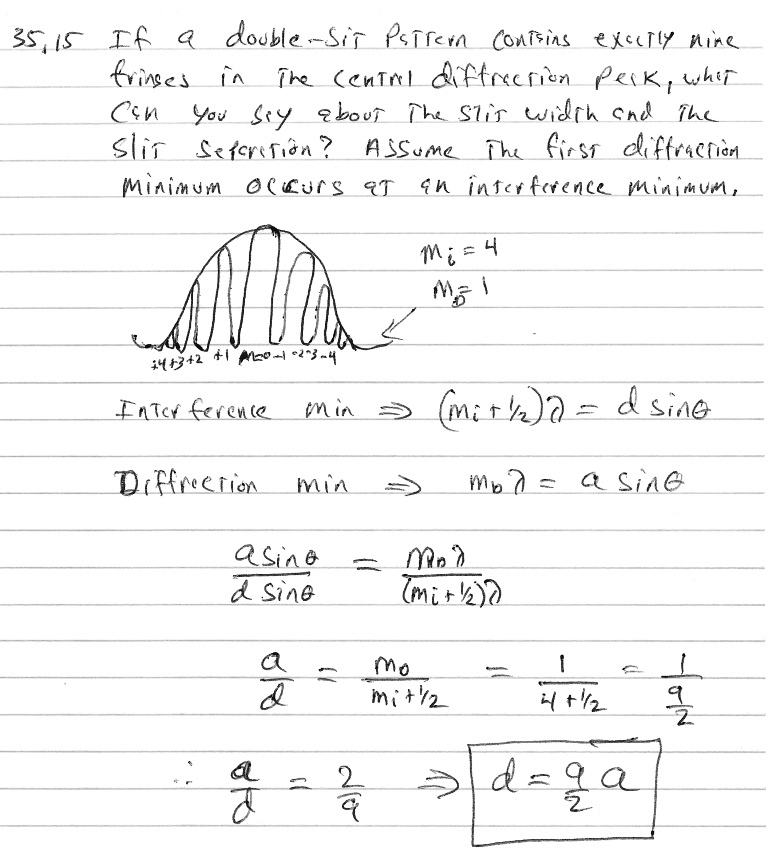 35.15 If a double-slit pattern contains exactly nine
fringes in the central diffraction peak, what
can you say about the slit width and the
slit separation? Assume the first diffraction
minimum occurs at an interference minimum.
mi = 4
mD = 1
+4 +3 +2 +1 m=0 -1 -2 -3 -4
Interference min ⇒ (mi + 1/2)λ = d sinθ
Diffraction min ⇒ mDλ = a sinθ
a sinθ / d sinθ = mDλ / (mi + 1/2)λ
a/d = mD / (mi + 1/2) = 1 / (4 + 1/2) = 1 / (9/2)
∴ a/d = 2/9 ⇒ d = 9/2 a